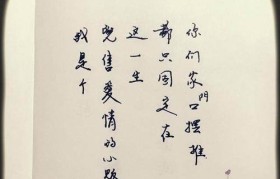 我是个
兜售爱情的小
这一生
都只固定在
你们家门口摆摊